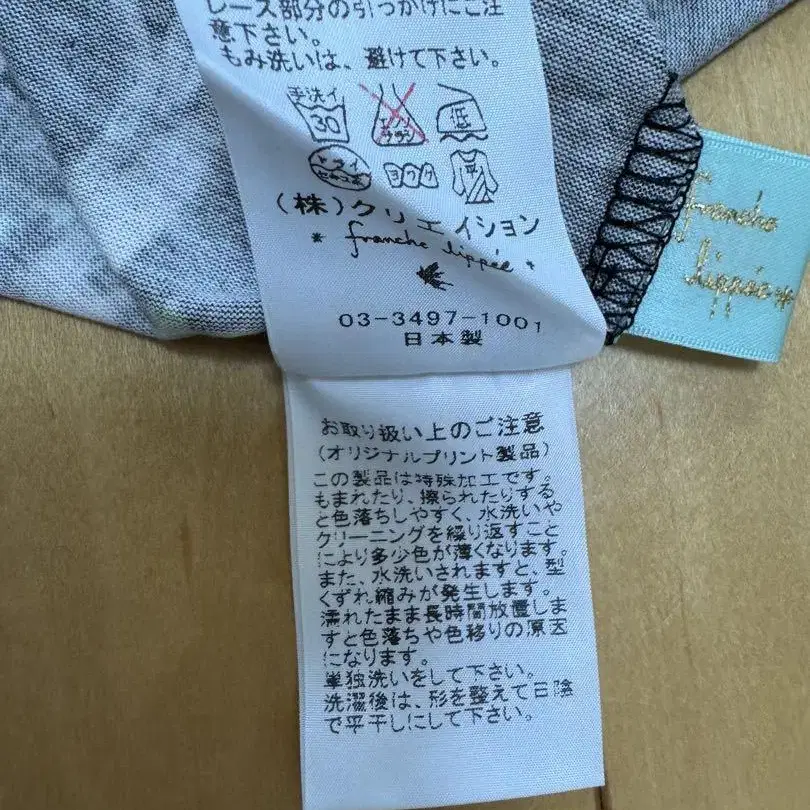 レース部分の引っかけにご注
意下さい。
もみ洗いは、避けて下さい。
手洗イ
30
エンソ
サラシ
低
ドライ
セキユ系
ヨワク
平
(株)クリエイション
* franche lippée *
03-3497-1001
日本製
franche
lippée*
お取り扱い上のご注意
(オリジナルプリント製品)
この製品は特殊加工です。
もまれたり、擦られたりする
と色落ちしやすく、水洗いや
クリーニングを繰り返すこと
により多少色が薄くなります。
また、水洗いされますと、型
くずれ縮みが発生します。
濡れたまま長時間放置しま
すと色落ちや色移りの原因
になります。
単独洗いをして下さい。
洗濯後は、形を整えて日陰
で平干しにして下さい。